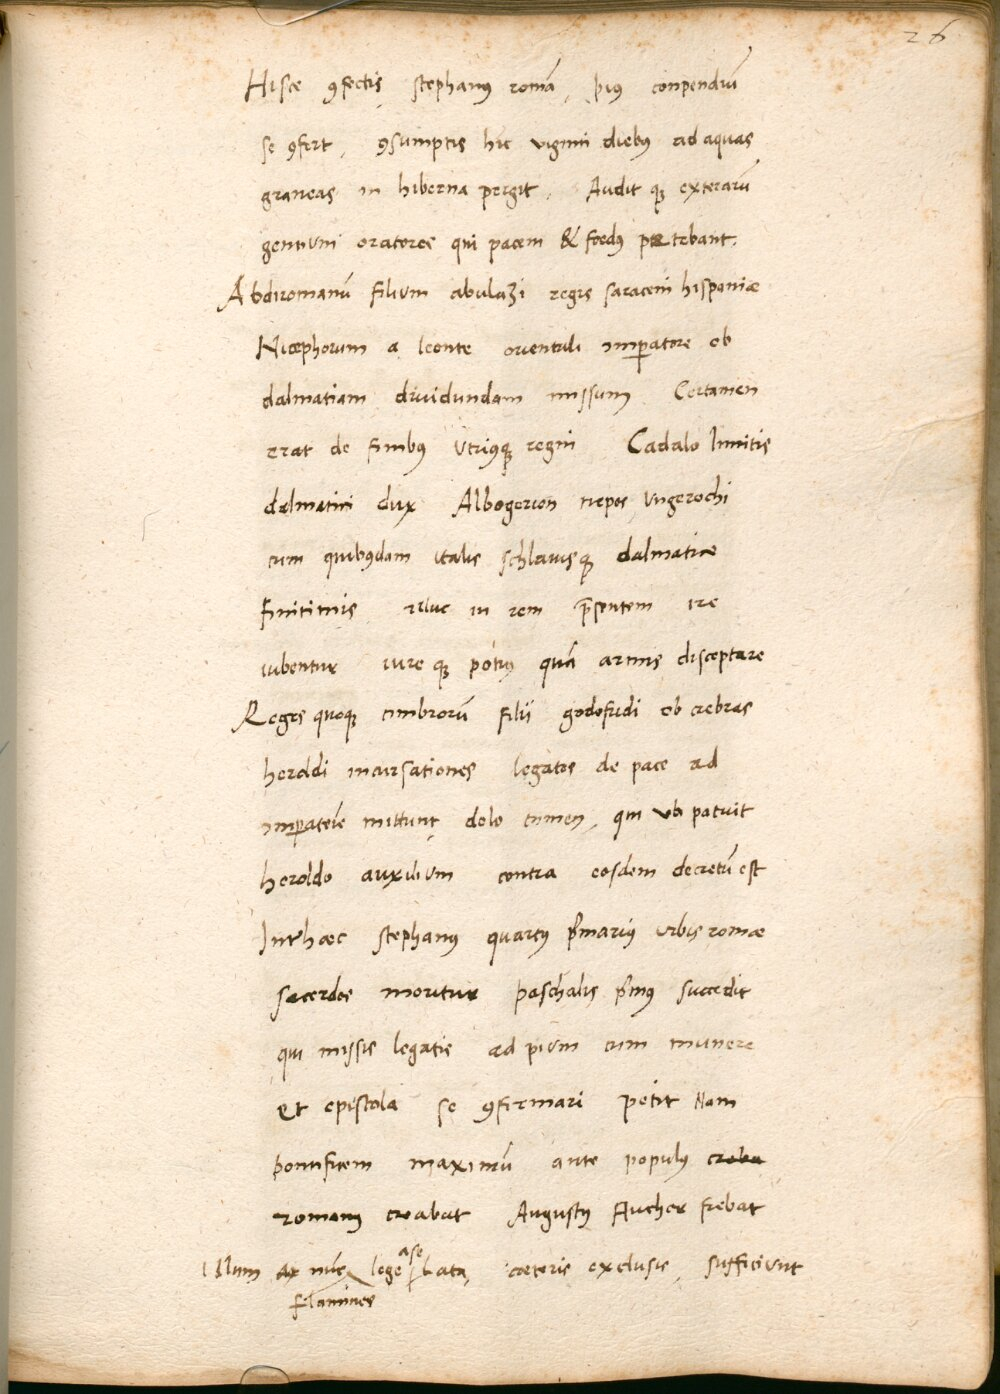 26
Hisce ꝯfectis stephanꝰ romã, pius conpendiũ
se ꝯfert, ꝯsumptis hic viginti diebꝰ ad aquas
graneas in hiberna pergit. Audit qꝫ exterarũ
gentium oratores qui pacem & foedꝰ petebant.
Abdiromanũ filium abulazi regis saraceni hispaniæ
Nicephorum a leonte orientali imꝑatore ob
dalmatiam diuidundam missum Certamen
erat de finibꝰ vtriꝰqꝫ regni Cadalo limitis
dalmatini dux Albogerion nepos vngerochi
cum quibꝰdam italis schlauisqꝫ dalmatiæ
finitimis illuc in rem p̃sentem ire
iubentur iure qꝫ potiꝰ quã armis disceptare
Reges quoqꝫ cimbrorũ filii godofridi ob crebras
heroldi incursationes legatos de pace ad
imꝑatorẽ mittunt, dolo tamen, qui vbi patuit
heroldo auxilium contra eosdem decretũ est
Inter hæc stephanꝰ quartꝰ p̃mariꝰ vrbis romæ
sacerdos moritur paschalis p̃mꝰ succedit
qui missis legatis ad pium cum munere
et epistola se ꝯfirmari petit Nam
pontificem maximũ ante populꝰ creba
romanꝰ creabat Augustꝰ Aucher fiebat
Illum nũc lege ase lata, cæteris exclusis, sufficiunt
flamines